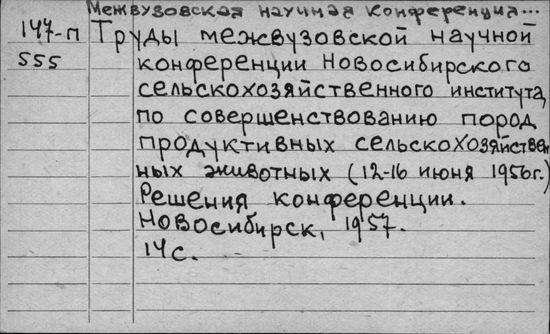 Межвузовская научная конференция...
147-п Труды межвузовской научной
555 конференции Новосибирского
сельскохозяйственного института,
по совершенствованию пород
продуктивных сельскохозяйствен
ных животных (12-16 июня 1956г.)
Решения конференции.
Новосибирск, 1957.
14с.